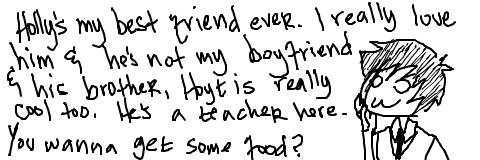 Holly's my best friend ever. I really love
him & he's not my boyfriend
& his brother, Hoyt is really
cool too. He's a teacher here.
You wanna get some food?